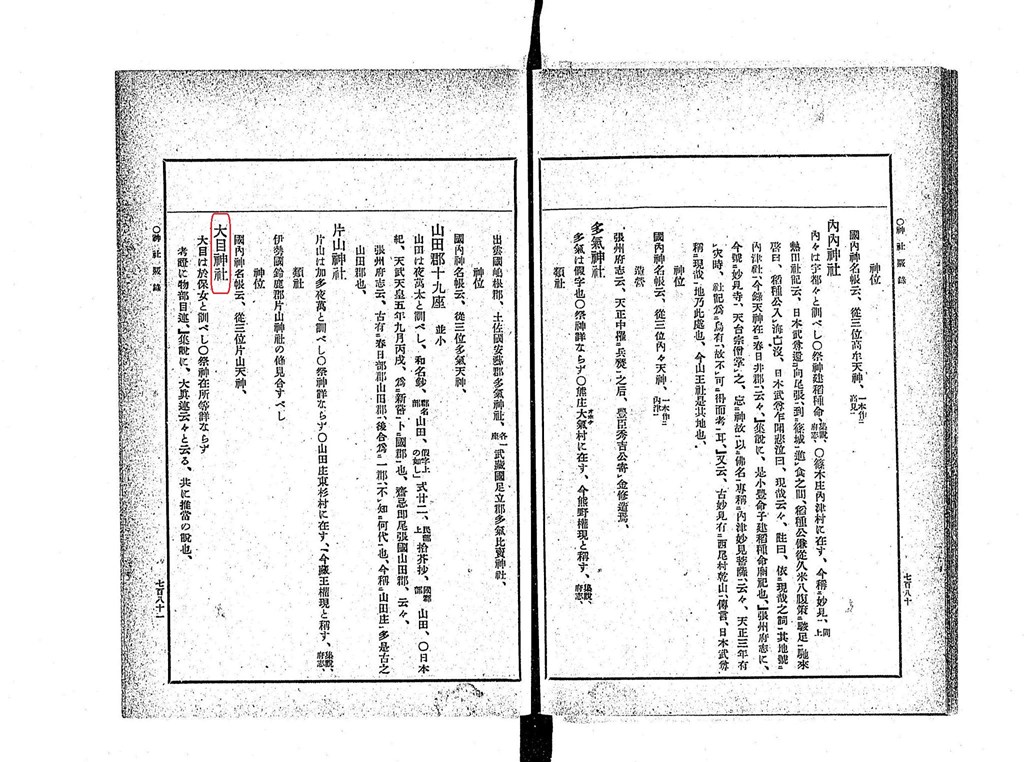 〇神社覈錄
七百八十
神位
國內神名帳云、從三位高牟天神、一本作二高見一
內內神社
內々は宇都々と訓べし〇祭神建稻種命、集說、府志、〇篠木庄內津村に在す、今稱二妙見一、同上
熱田社記云、日本武尊還二向尾張一、到二篠城一、進レ食之間、稻種公傔從久米八腹策二駿足一馳來
啓曰、稻種公入レ海亡沒、日本武尊乍聞悲泣曰、現哉云々、註曰、依二現哉之詞一其地號二
內津社一、今錄天神在二春日井郡一云々、【集說に、是小豊命子建稻種命廟祀也、【張州府志に、
今號二妙見寺一、天台宗僧掌レ之、忘レ神故二以佛名一專稱二內津妙見菩薩一云々、天正三年有
灾時、社記爲二烏有一、故不レ可二得而考一耳、【又云、古妙見有二西尾村乾山一、傳言、日本武尊
稱二現哉一地乃此處也、今山王社是其地也、
神位
國內神名帳云、從三位內々天神、一本作二內津一
造營
張州府志云、天正中罹二兵燹一之后、豐臣秀吉公寄レ金修造焉、
多氣神社
多氣は假字也〇祭神詳ならず〇熊庄大氣村に在す、今熊野權現と稱す、集說、府志、
類社
出雲國嶋根郡、土佐國安藝郡多氣神社、各一座武藏國足立郡多氣比賣神社、
神位
國內神名帳云、從三位多氣天神、
山田郡十九座　並小
山田は夜萬太と訓べし、和名鈔、郡名部山田、假字上の如し式廿二、民部上拾芥抄、國郡部山田、〇日本
紀、天武天皇五年九月丙戌、爲二新嘗一卜二國郡一也、齋忌則尾張國山田郡、云々、
張州府志云、古有二春日部郡山田郡一、後合爲二一郡一、不レ知二何代一也、今稱二山田庄一、多是古之
山田郡也、
片山神社
片山は加多夜萬と訓べし〇祭神詳ならず〇山田庄東杉村に在す、今藏王權現と稱す、集說、府志、
類社
伊勢國鈴鹿郡片山神社の條見合すべし
神位
國內神名帳云、從三位片山天神、
大目神社
大目は於保女と訓べし〇祭神在所等詳ならず
考證に物部目連、【集說に、大眞連云々と云る、共に推當の說也、
〇神社覈錄
七百八十一